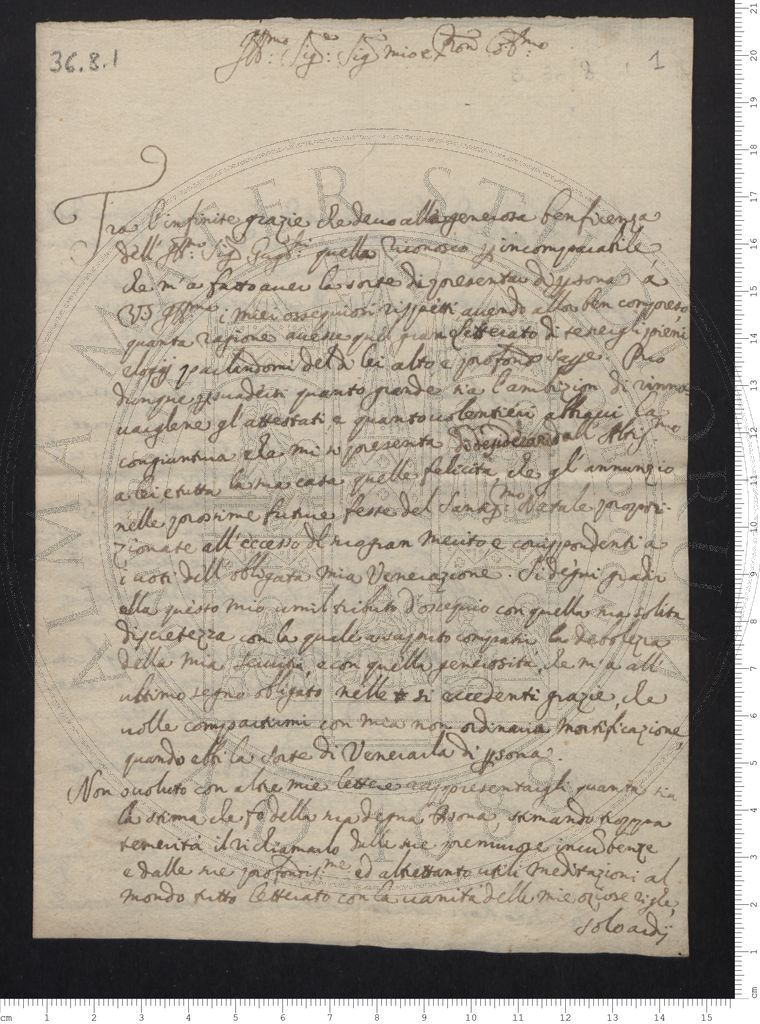 36.8.1
1
Illmo: Sig:re Sig:r mio e Pron Co:lmo
Tra l'infinite grazie che devo alla generosa beneficenza
dell' Illmo Sig. quella riconosco p incomparabile,
che m'a fatto aver la sorte di presentar di psona a
VS Illma i miei ossequiosi rispetti avendo allor ben compreso
quanta ragione avesse quel gran Letterato di tenergli pieni
elogij parlandomi del di lei alto e profondo saper. Può
dunque psuadersi quanto grande sia l'ambizion di rinno-
varglene gl'attestati e quanto volentieri abbia qui la
congiuntura che mi si presenta di desiderar dall' Altis:mo
a lei e tutta la sua casa quelle felicità, che gl'annunzio
nelle prossime future feste del Santis:mo Natale propor-
zionate all'eccesso del suo gran merito, e corrispondenti a
i voti dell'obbligata mia Venerazione. Si degni gradir
ella questo mio umil tributo d'ossequio con quella sua solita
discretezza con la quale a compatir la debolezza
della mia servitù, e con quella generosità, che m'a all'
ultimo segno obligato nelle si eccedenti grazie, che
volle compartirmi con mia non ordinaria mortificazione,
quando ebbi la sorte di Venerarla di psona.
Non o voluto con altre mie lettere rappresentargli quanta sia
la stima che fo della sua degna Psona, stimando troppa
temerità il richiamarlo dalle sue premurose incumbenze
e dalle sue profondis:me ed altrettanto utili meditazioni al
mondo tutto letterato con la vanità delle mie oziose righe,
solo ardij